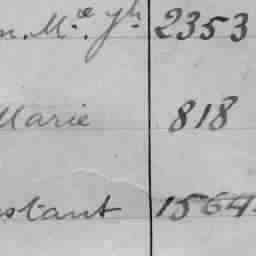 n. M.ce Jh. 2353
Marie 818
nstant 1564